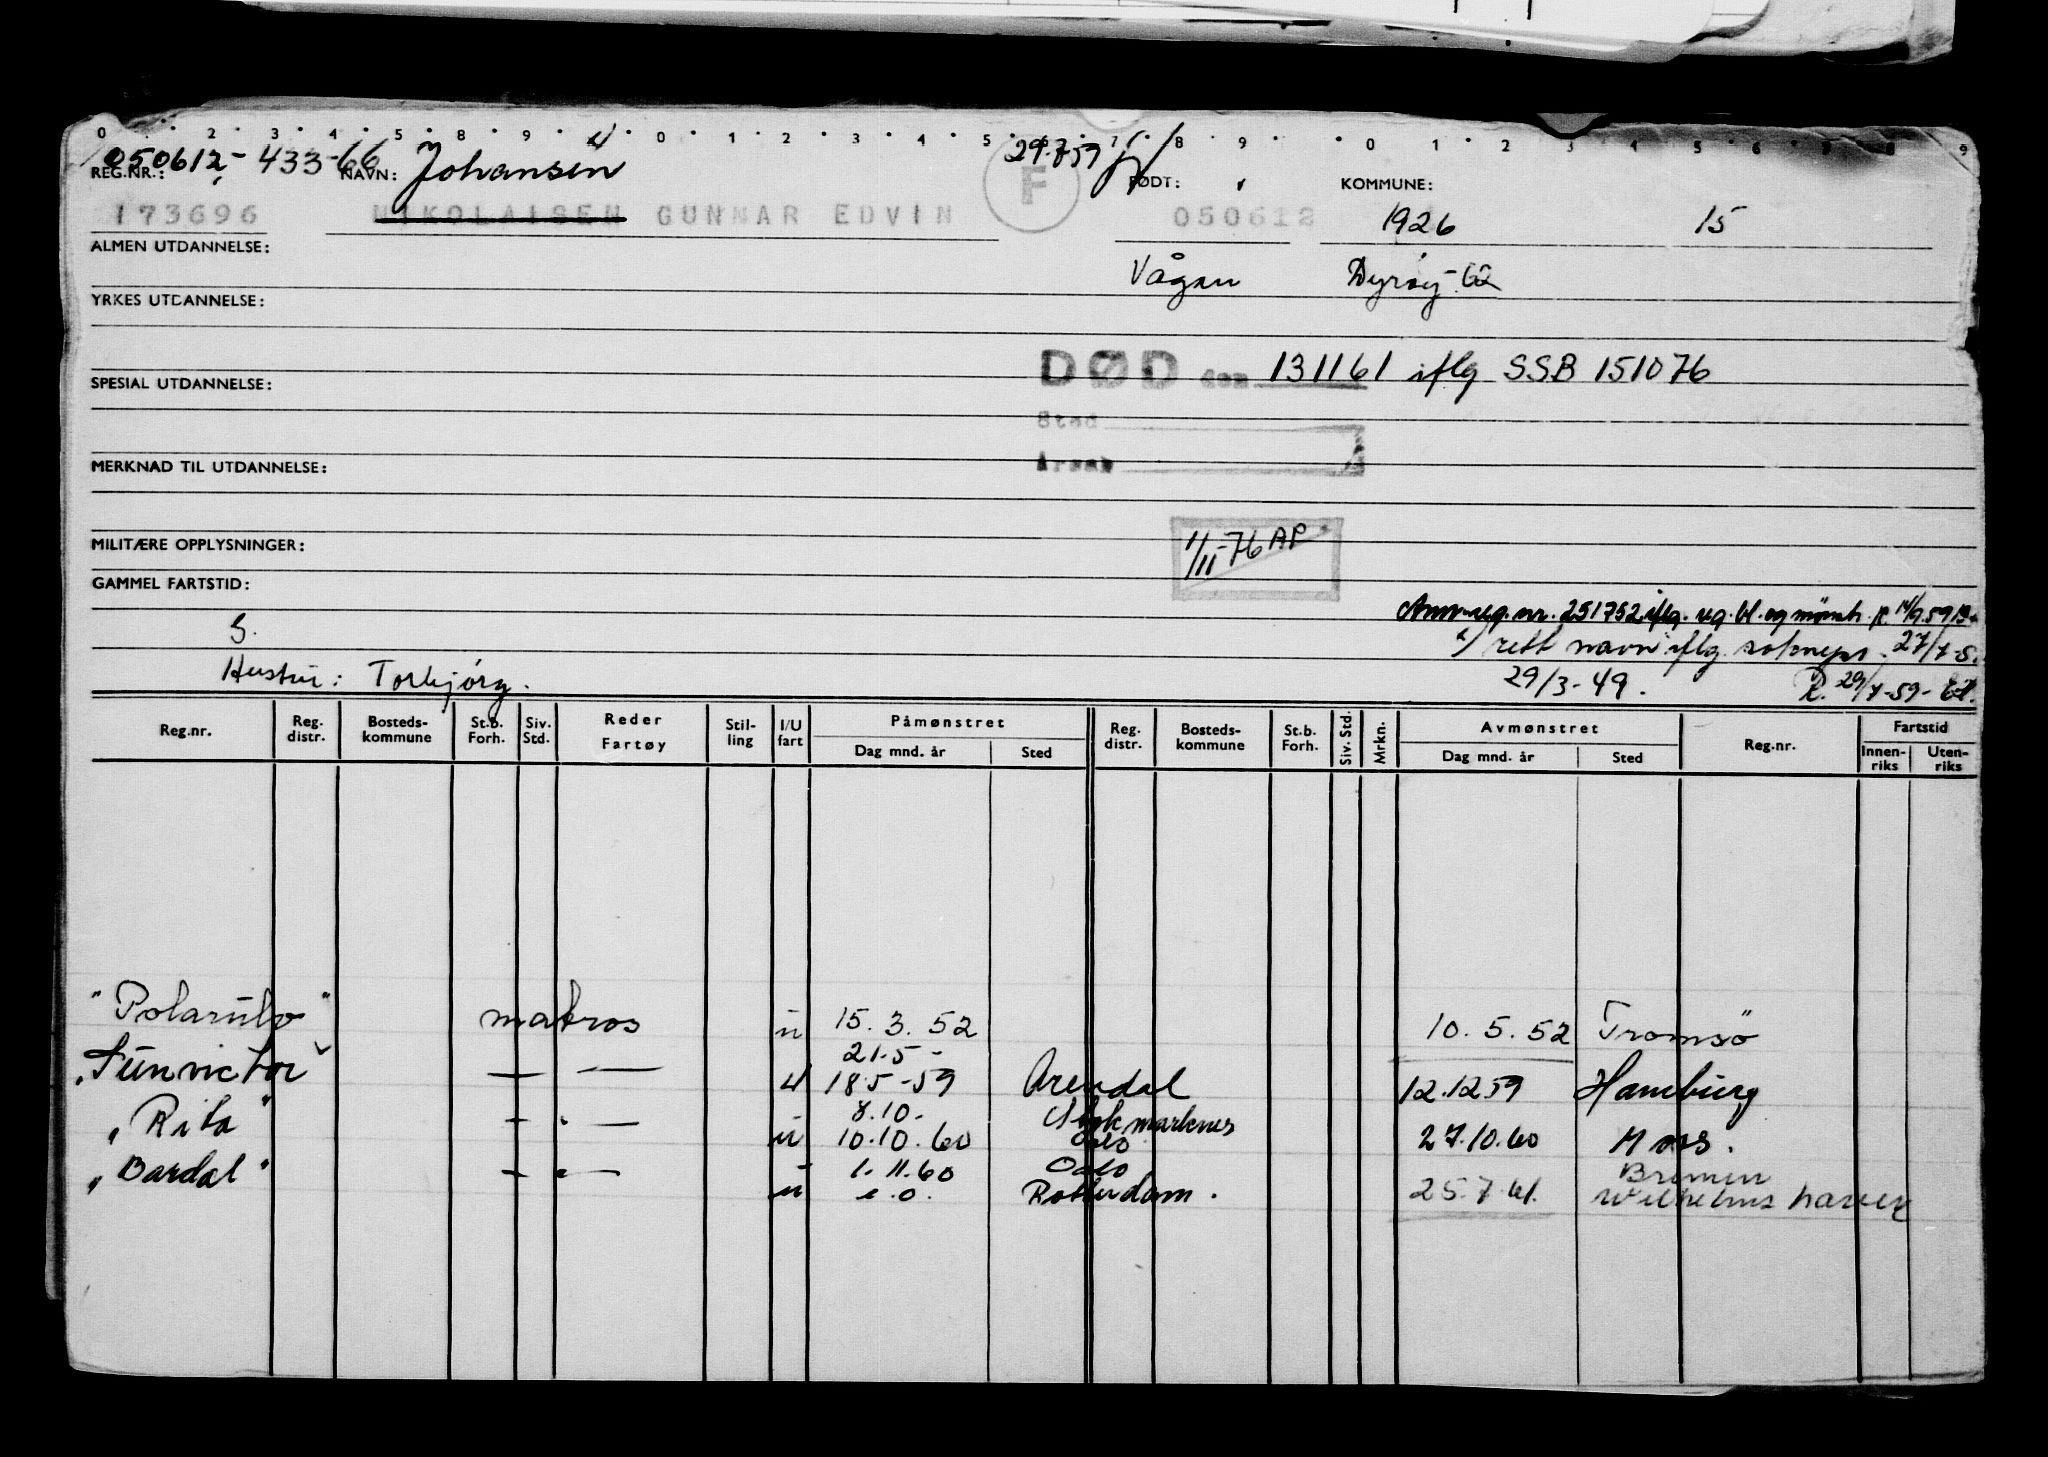 0 . 2 . 3 . 4 . 5 . 8 . 9 . . 0 . 1 . 2 . 3 . 4 . 5 . 7 . 8 . 9 . 0 1 2 3 4 5 6 9
050612-433-66 Johansen 29.7.59
REG.NR.: NAVN: F FØDT: KOMMUNE:
173696 NIKOLAISEN GUNNAR EDVIN 050612 1926 15
ALMEN UTDANNELSE:
Vågan Dyrøy-62
YRKES UTDANNELSE:
DØD den 131161 iflg SSB 151076
SPESIAL UTDANNELSE:
Sted
Årsak
MERKNAD TIL UTDANNELSE:
1/11-76 AP
MILITÆRE OPPLYSNINGER:
GAMMEL FARTSTID:
Ann. reg. nr. 251752 iflg. reg. bl. og mønstr. R 14/9.59
G. x) rett navn iflg. sokнepr. 27/7-5.
Hustru: Torbjørg. 29/3-49. R. 29/7-59-
Reg.nr. Reg. distr. Bosteds-kommune St.b. Forh. Siv. Std. Reder Fartøy Stil-ling I/U fart Påmønstret Dag mnd. år Sted Reg. distr. Bosteds-kommune St.b. Forh. Siv. Std. Mrkn. Avmønstret Dag mnd. år Sted Reg.nr. Fartstid Innen-riks Uten-riks
"Polarulv" matros u 15.3.52 10.5.52 Tromsø
21.5-
"Sunvictor" — — u 18.5-59 Arendal 12.12.59 Hamburg
8.10- Stokmarknes
"Rita" — " — u 10.10.60 Oslo 27.10.60 Moss.
1.11.60 Oslo Bremen
"Bardal" — " — u s.o. Rotterdam. 25.7.61. Wilhelmshaven